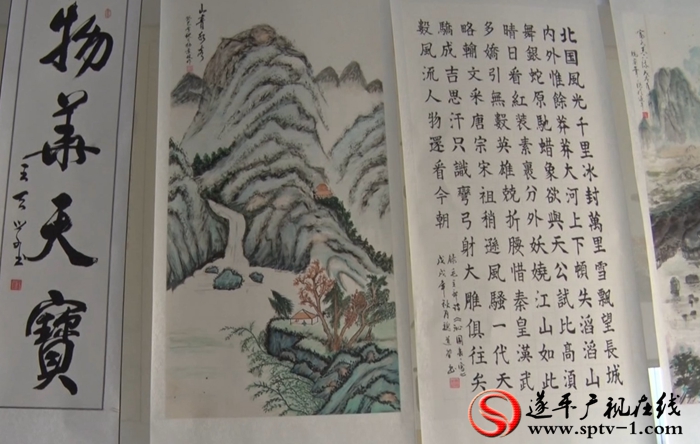 物華天寶
北国風光千里冰封萬里雪飄望長城
内外惟餘莽莽大河上下頓失滔滔山
舞銀蛇原馳蜡象欲與天公試比高湏
晴日看紅裝素裹分外妖嬈江山如此
多嬌引無數英雄兢折腰惜秦皇漢武
略輸文采唐宗宋祖稍遜風騷一代天
驕成吉思汗只識彎弓射大雕俱往矣
數風流人物還看今朝
遂平广视在线
www.sptv-1.com